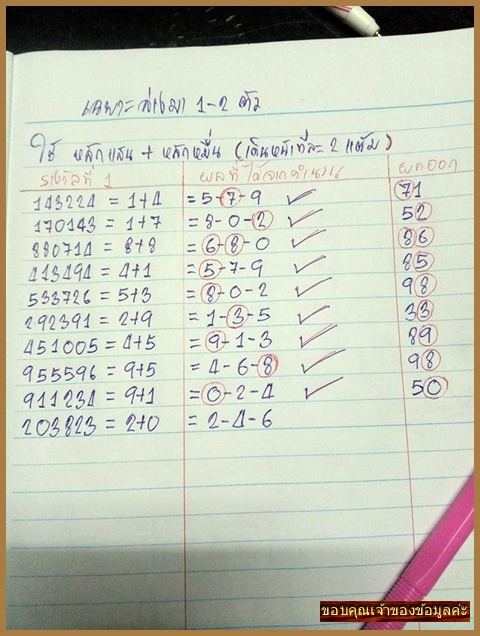 เฉพาะล่างมา 1-2 ตัว
ใช้ หลักแสน + หลักหมื่น (เดินหน้าทีละ 2 แต้ม)
รางวัลที่ 1 ผลที่ได้จากคำนวน ผลออก
143224 = 1+4 = 5-7-9 71
170143 = 1+7 = 8-0-2 52
880714 = 8+8 = 6-8-0 86
413494 = 4+1 = 5-7-9 85
533726 = 5+3 = 8-0-2 98
292391 = 2+9 = 1-3-5 33
451005 = 4+5 = 9-1-3 89
955596 = 9+5 = 4-6-8 98
911234 = 9+1 = 0-2-4 50
203823 = 2+0 = 2-4-6
ขอบคุณเจ้าของข้อมูลค่ะ